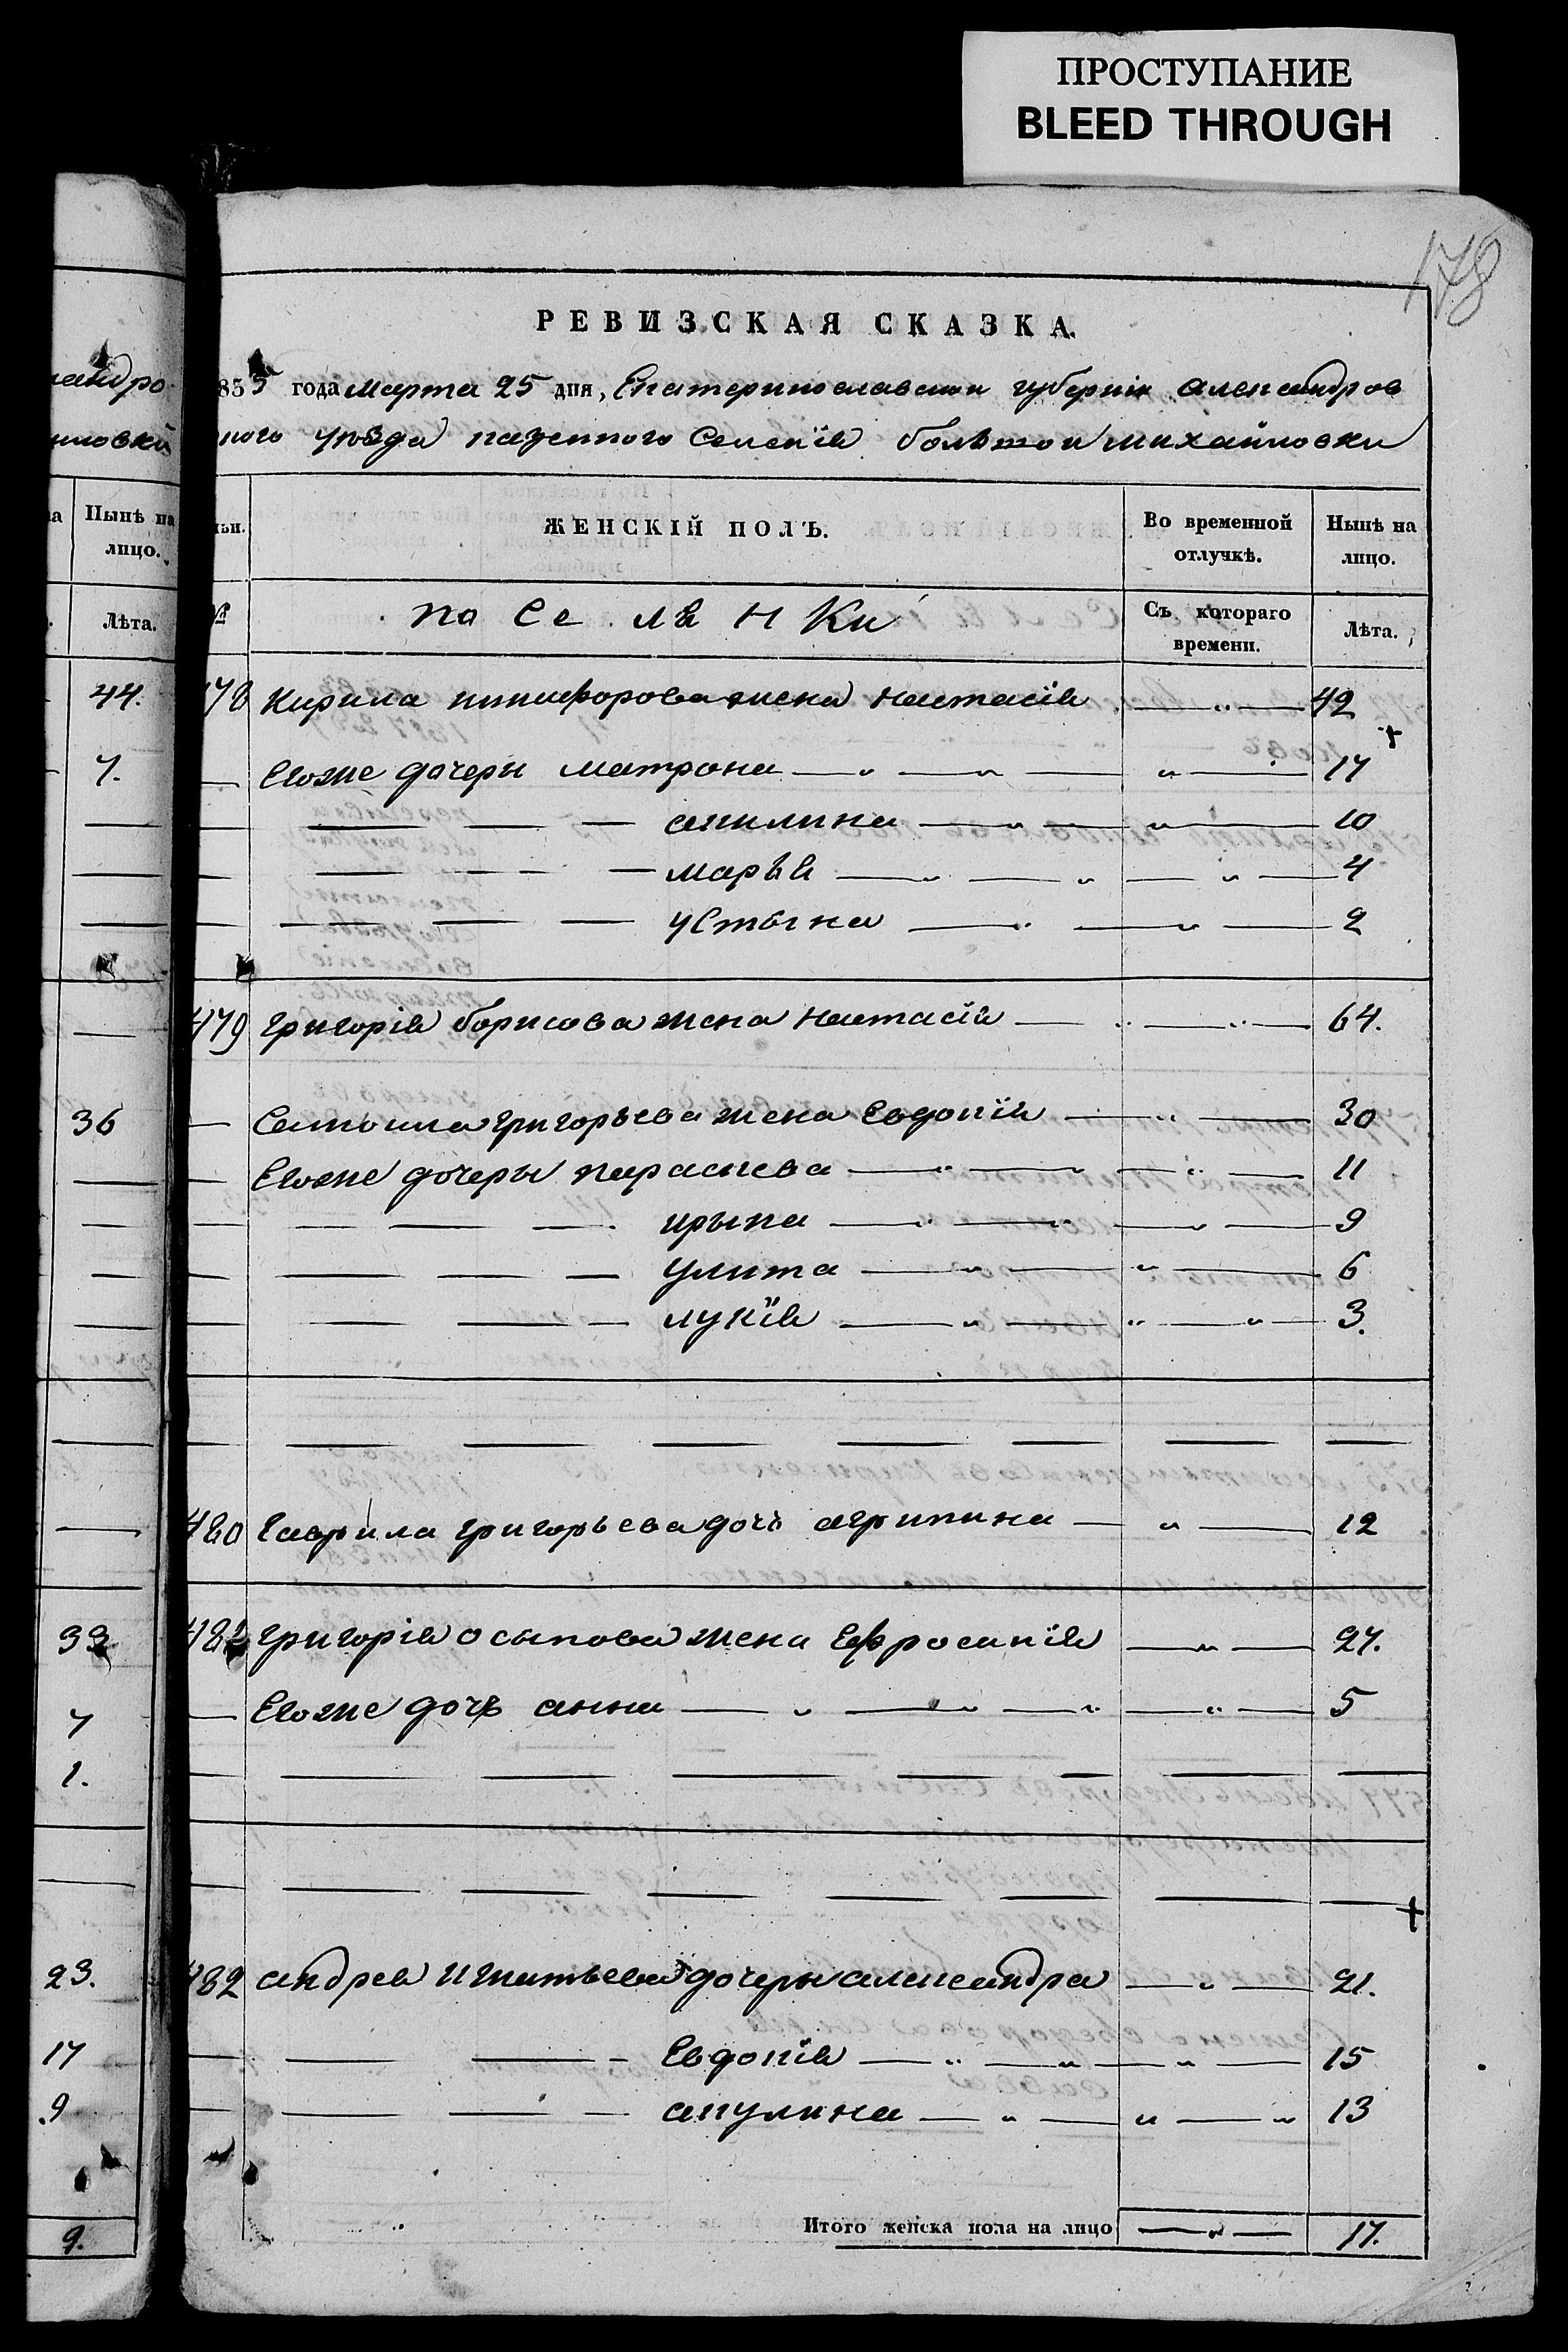 ПРОСТУПАНИЕ
BLEED THROUGH
178
РЕВИЗСКАЯ СКАЗКА.
835 года марта 25 дня, Екатеринославской губернiи Александров
ного уѣзда казенного Селенiя большой михайловки
ЖЕНСКIЙ ПОЛЪ.
Во временной отлучкѣ.
Нынѣ на лицо.
поселянки
Съ котораго времени.
Лѣта.
478 Кирила никифорова жена настасiя 42
Егоже дочеры матрона 17
акилина 10
марья 4
устына 2
479 григорiя борисова жена настасiя 64.
Самоила григорьева жена Евдокiя 30
Егоже дочеры параскева 11
ирына 9
улита 6
лукiя 3.
480 гаврила григорьева дочь агрипина 12
481 григорiя осыпова жена Ефросинiя 27.
Егоже дочь анна 5
482 андрея игнатьева дочеры александра 21.
Евдокiя 15
акулина 13
Итого женска пола на лицо 17.
андро
иловки
Нынѣ на лицо.
Лѣта.
44.
7.
36
33
7
1.
23.
17
9
9.